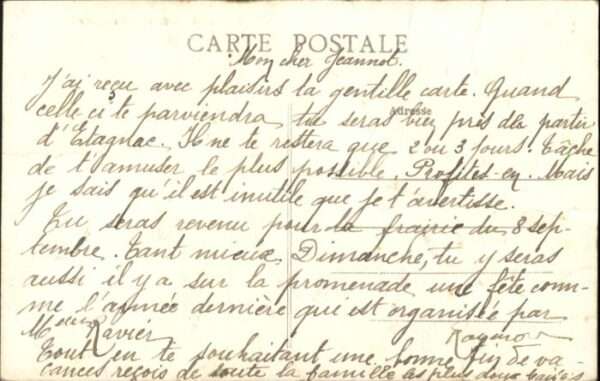 CARTE POSTALE
Mon cher Jeannot.
J'ai reçu avec plaisirs la gentille carte. Quand
Adresse
celle ci te parviendra tu seras bien près de partir
d'Etagnac. Il ne te restera que 2 ou 3 jours. Tâche
de t'amuser le plus possible. Profites-en. Mais
je sais qu'il est inutile que je t'avertisse.
Tu seras revenu pour la frairie du 8 sep-
tembre. Tant mieux, Dimanche, tu y seras
aussi il y a sur la promenade une fête com-
me l'année dernière qui est organisée par
Xavier
Tout en te souhaitant une bonne fin de va-
cances reçois de toute la famille les plus doux